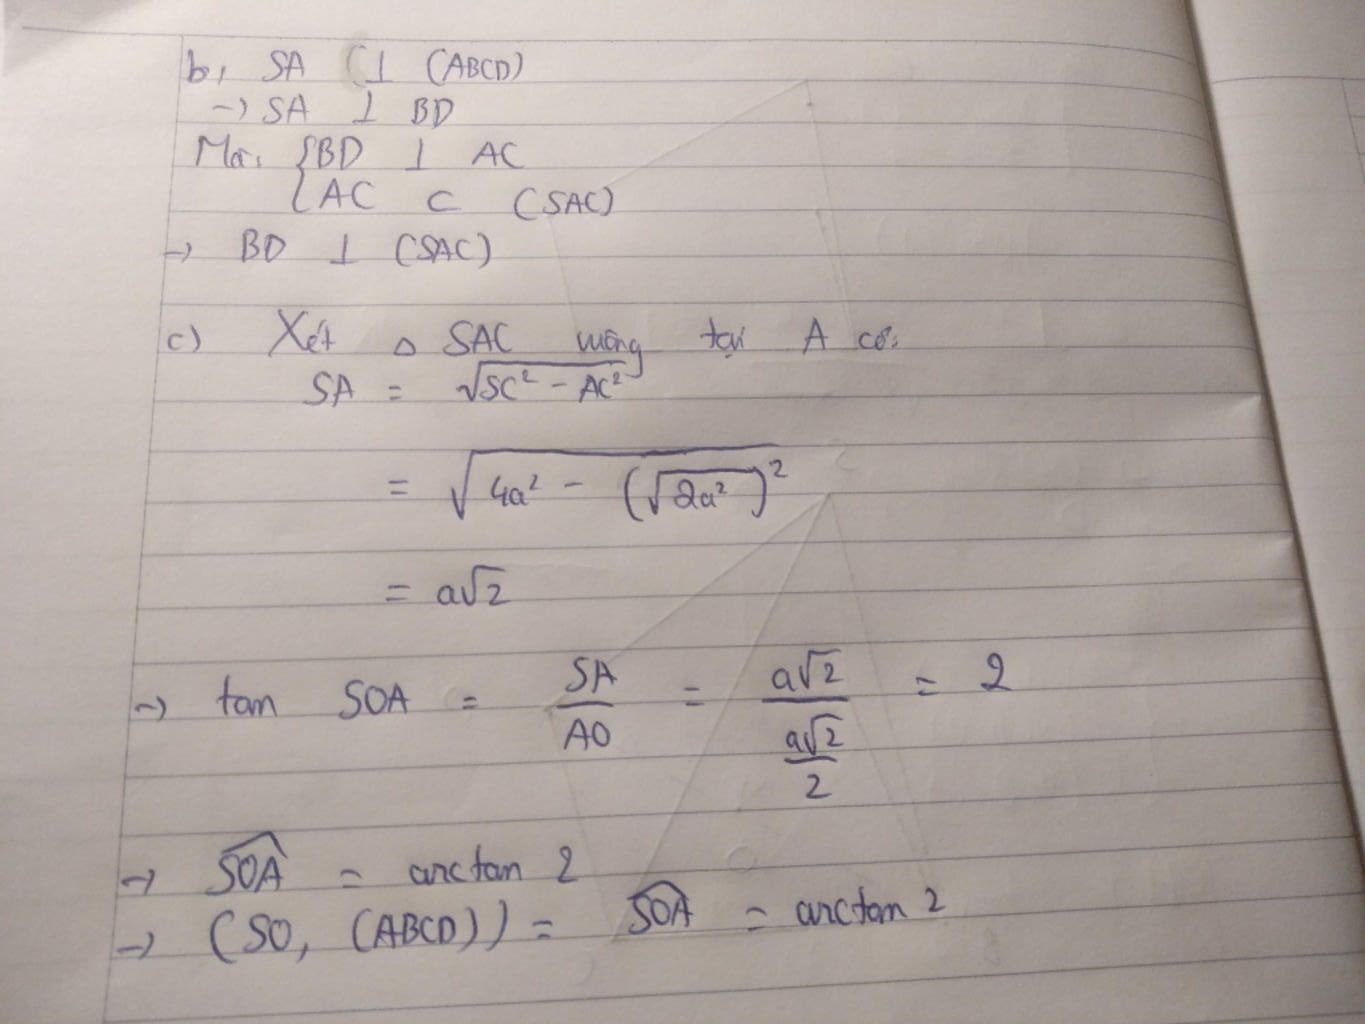 b, SA ⊥ (ABCD)
→ SA ⊥ BD
Mà: { BD ⊥ AC
{ AC ⊂ (SAC)
→ BD ⊥ (SAC)
c) Xét △ SAC vuông tại A có:
SA = √(SC² - AC²)
= √(4a² - (√(2a²))²)
= a√2
→ tan SOA = SA/AO = (a√2)/(a√2/2) = 2
→ \widehat{SOA} = arctan 2
→ (SO, (ABCD)) = \widehat{SOA} = arctan 2